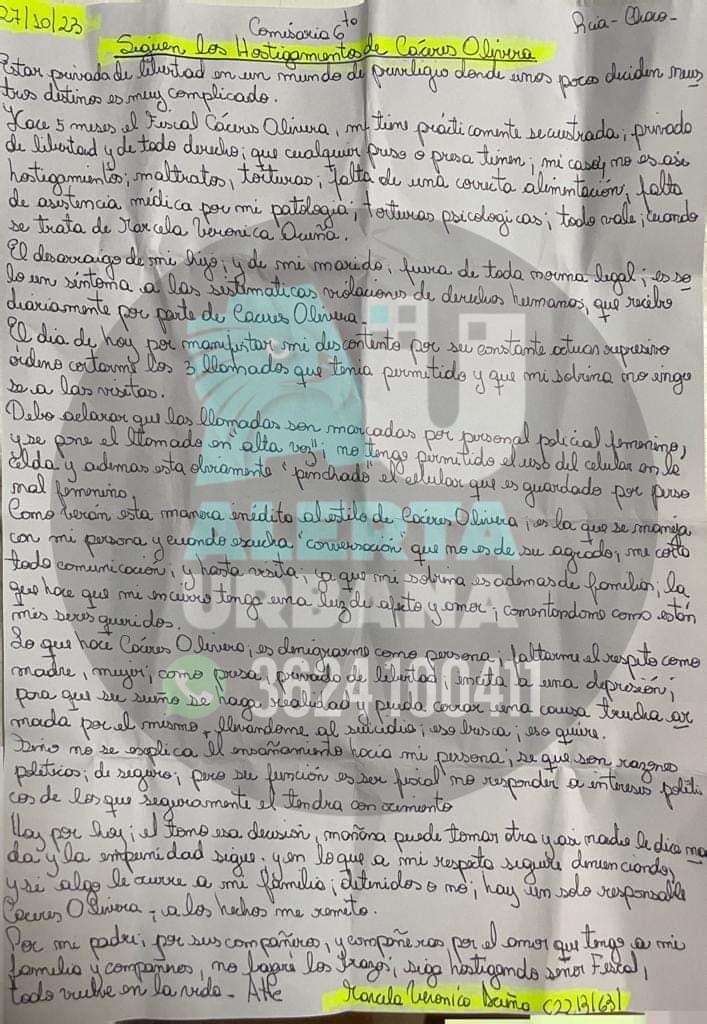 27/10/23 Comisaria 6to Rcia - Chaco -
Siguen los Hostigamientos de Cáceres Olivera
Estar privada de libertad en un mundo de privilegio donde unos pocos deciden nues
tros destinos es muy complicado.
Hace 5 meses el Fiscal Cáceres Olivera, me tiene prácticamente secuestrada; privada
de libertad y de todo derecho; que cualquier preso o presa tienen; mi caso, no es asi
hostigamientos; maltratos, torturas; falta de una correcta alimentación, falta
de asistencia médica por mi patologia; torturas psicologicas; todo vale; cuando
se trata de Marcela Veronica Acuña.
El desarraigo de mi hijo; y de mi marido; fuera de toda norma legal; es so
lo un síntoma a las sistimaticas violaciones de derechos humanos, que recibo
diariamente por parte de Cáceres Olivera.
El dia de hoy por manifestar mi descontento por su constante actuar supresivo
ordeno cortarme los 3 llamados que tenia permitido y que mi sobrina no ingre
se a las visitas.
Debo aclarar que las llamadas son marcadas por personal policial femenino,
y se pone el llamado en "alta voz"; no tengo permitido el uso del celular en la
celda y ademas esta obviamente "pinchado" el celular que es guardado por perso
nal femenino.
Como verán esta manera inédita al estilo de Cáceres Olivera; es la que se maneja
con mi persona y cuando escucha "conversación" que no es de su agrado, me corta
toda comunicación; y hasta visita; ya que mi sobrina es ademas de familiar; la
que hace que mi encierro tenga una luz de afecto y amor; comentandome como están
mis seres queridos.
Lo que hace Cáceres Olivera; es denigrarme como persona; faltarme el respeto como
madre, mujer; como presa, privada de libertad; incita a una depresión;
para que su sueño se haga realidad y pueda cerrar una causa trucha ar
mada por el mismo, llevandome al suicidio; eso busca; eso quiere.
Sino no se explica el ensañamiento hacia mi persona; se que son razones
politicas; de seguro; pero su función es ser fiscal no responder a intereses politi
cos de los que seguramente el tendra conocimiento
Hoy por hoy; el tomo esa decisión, mañana puede tomar otra y asi nadie le dice na
da y la impunidad sigue. y en lo que a mi respeta seguire denunciando,
y si algo le ocurre a mi familia; detenidos o no; hay un solo responsable
Cáceres Olivera - a los hechos me remito.
Por mi padre; por sus compañeros, y compañeras por el amor que tengo a mi
familia y compañeros, no bajaré los brazos; siga hostigando señor Fiscal,
todo vuelve en la vida - Atte Marcela Veronica Acuña (22.131631
ALERTA
URBANA
3624110041